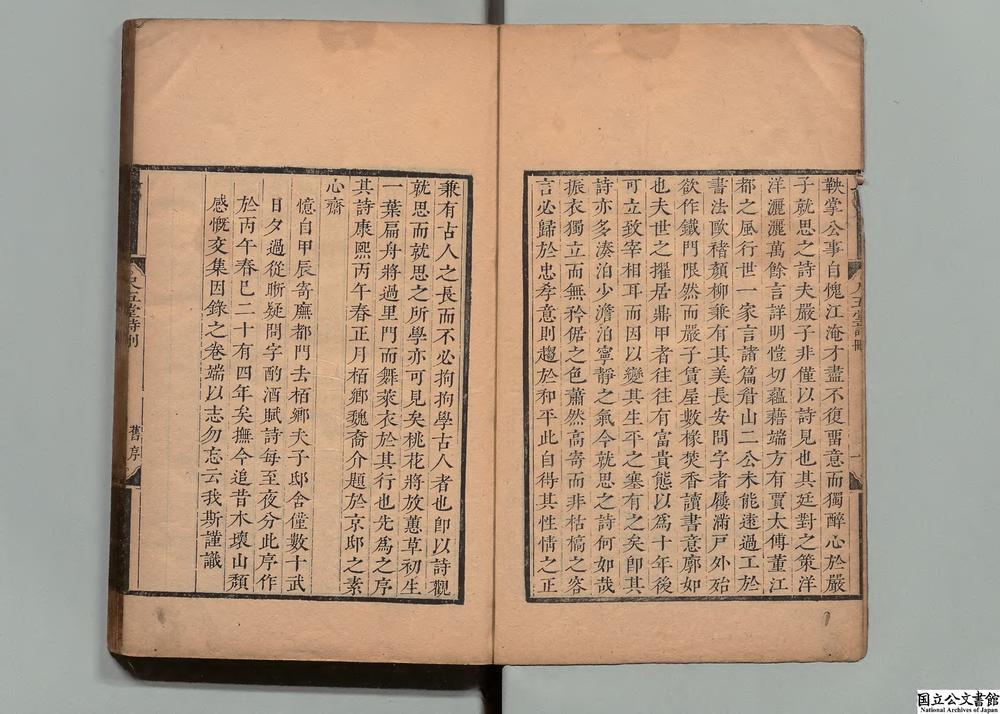 鞅掌公事自愧江淹才盡不復畱意而獨醉心於嚴
子就思之詩夫嚴子非僅以詩見也其廷對之策洋
洋灑灑萬餘言詳明愷切蘊藉端方有賈太傅董江
都之風行世一家言諸篇眉山二公未能遠過工於
書法歐褚顏柳兼有其美長安問字者屨滿戸外始
欲作鐵門限然而嚴子賃屋數椽焚香讀書意廓如
也夫世之擢居鼎甲者往往有富貴態以爲十年後
可立致宰相耳而因以變其生平之塞有之矣卽其
詩亦多湊泊少澹泊寧靜之氣今就思之詩何如哉
振衣獨立而無矜倨之色蕭然高寄而非枯槁之容
言必歸於忠孝意則趨於和平此自得其性情之正
兼有古人之長而不必拘拘學古人者也卽以詩觀
就思而就思之所學亦可見矣桃花將放蕙草初生
一葉扁舟將過里門而舞萊衣於其行也先爲之序
其詩康熙丙午春正月栢鄉魏裔介題於京邸之素
心齋
憶自甲辰寄廡都門去栢鄉夫子邸舍僅數十武
日夕過從斯疑問字酌酒賦詩每至夜分此序作
於丙午春已二十有四年矣撫今追昔木壞山頽
感慨交集因錄之卷端以志勿忘云我斯謹識
尺五堂詩刪
舊序
国立公文書館
National Archives of Japan